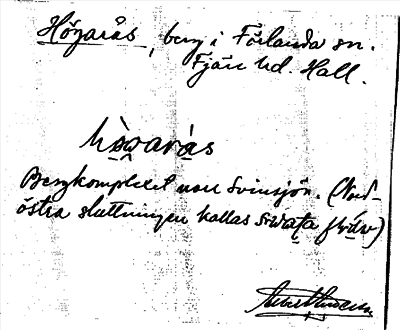 Högarås, berg i Förlanda sn.
Fjäre hd. Hall.
hògarás
Bergkomplexet norr Svinsjön. (Nord-
östra sluttningen kallas